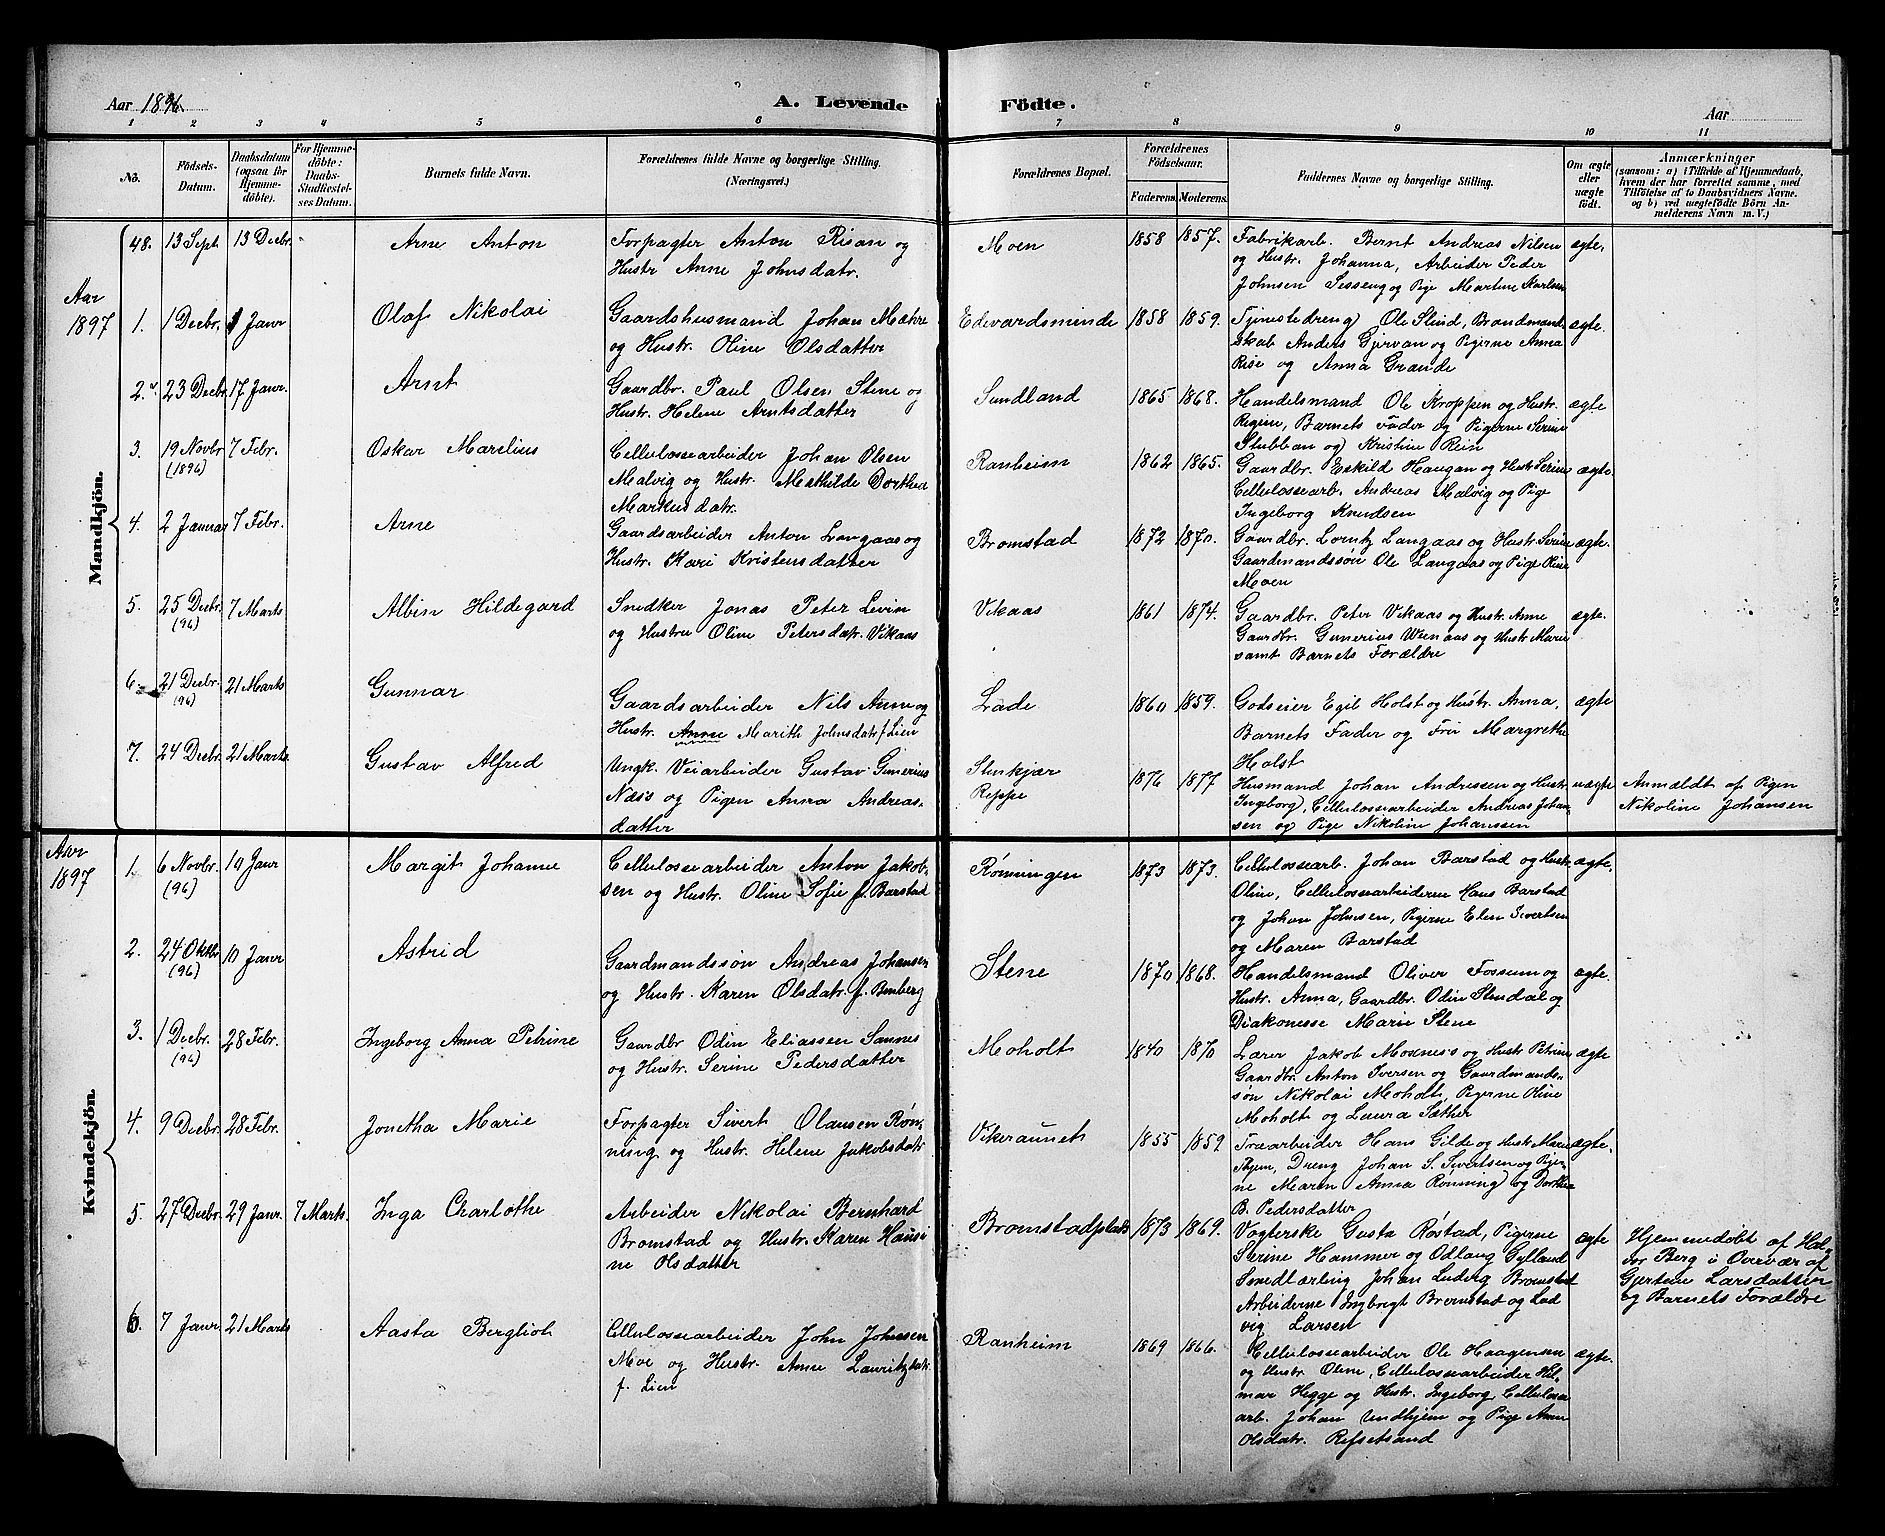 Aar 1896.
A. Levende Födte.
Aar
1 2 3 4 5 6 7 8 9 10 11
No.
Födsels-
Datum.
Daabsdatum
(ogsaa for
Hjemme-
döbte).
For Hjemme-
döbte:
Daabs-
Stadfæstel-
ses Datum.
Barnets fulde Navn.
Forældrenes fulde Navne og borgerlige Stilling.
(Næringsvei.)
Forældrenes Bopæl.
Forældrenes
Födselsaar.
Faderens. Moderens.
Faddernes Navne og borgerlige Stilling.
Om ægte
eller
uægte
födt.
Anmærkninger
(saasom: a) i Tilfælde af Hjemmedaab,
hvem der har forrettet samme, med
Tilföielse af to Daabsvidners Navne.
og b) ved uægtefödte Börn An-
melderens Navn m. V.)
Mandkjön.
48. 13 Sept. 13 Decbr.
Arne Anton
Forpagter Anton Risan og
Hustr Anne Johnsdatr.
Moen
1858 1857.
Fabrikarb. Bernt Andreas Nilsen
og Hustr. Johanna, Arbeider Peder
Johnsen Sesseng og Pige Martine Karlsen
ægte.
Aar
1897
1. 1 Decbr. 1 Janr
Olaf Nikolai
Gaardshusmand Johan Mæhre
og Hustr. Oline Olsdatter
Edevardsminde
1858 1859.
Tjenestedreng Ole Stind, Brandmand-
skab Anders Gjervan og Pigerne Anna
Rise og Anna Grande
ægte.
2. 23 Decbr. 17 Janr.
Arnt
Gaardbr. Paul Olsen Stene og
Hustr. Helene Arntsdatter
Sundland
1865 1868.
Handelsmand Ole Kroppen og Hustr.
Rigine, Barnets Fader og Pigerne Serine
Stubban og Kristine Rein
ægte
3. 19 Novbr (1896) 7 Febr.
Oskar Marelius
Cellulossearbeider Johan Olsen
Malvig og Hustr. Mathilde Dorthea
Markusdatr.
Ranheim
1862 1865.
Gaardbr. Eskild Haugan og Hustr Serine
Cellulossearb. Andreas Malvig og Pige
Ingeborg Knudsen
ægte.
4. 2 Januar 7 Febr.
Arne
Gaardsarbeider Anton Langaas og
Hustr. Kari Kristensdatter
Bromstad
1872 1870.
Gaardbr. Lorntz Langaas og Hustr Serine
Gaardmandssön Ole Langaas og Pige Oline
Moen
ægte.
5. 25 Decbr (96) 7 Marts
Albin Hildegard
Snedker Jonas Peter Levin
og Hustru Oline Petersdatr. Vikaas
Vikaas
1861 1874.
Gaardbr. Peter Vikaas og Hustr. Anne
Gaardbr. Gunerius og Hustr Marie
samt Barnets Forældre
ægte.
6. 21 Decbr. (96) 21 Marts
Gunnar
Gaardsarbeider Nils Aune og
Hustr. Anne Marith Johnsdatr f Lien
Lade
1860 1859.
Godseier Egil Holst og Hustr. Anna,
Barnets Fader og Frü Margrethe
Holst
ægte
7. 24 Decbr. 21 Marts.
Gustav Alfred
Ungk. Veiarbeider Gustav Gunerius
Næss og Pigen Anna Andreas-
datter
Stenkjær
Reppe
1876 1877
Husmand Johan Andresen og Hustr
Ingeborg, Cellulossearbeider Andreas Johan-
sen og Pige Nikoline Johanssen
uægte
Anmældt af Pigen
Nikoline Johansen
Kvindekjön.
Aar
1897
1. 6 Novbr. (96) 10 Janr
Margit Johanne
Cellulossearbeider Anton Jakob-
sen og Hustr. Oline Sofie f. Barstad
Rønningen
1873 1873.
Cellulossearb. Johan Barstad og Hustr.
Oline, Cellulossearbeiderne Hans Barstad
og Johan Johnsen, Pigerne Elen Sivertsen
og Maren Barstad
ægte.
2. 24 Oktbr (96) 10 Janr
Astrid
Gaardmandssön Andreas Johansen
og Hustr. Karen Olsdatr. f. Bmberg
Stene
1870 1868.
Handelsmand Oliver Fossum og
Hustr. Anna, Gaardbr. Odin Stendal og
Diakonesse Marie Stene
ægte.
3. 1 Decbr. (96) 28 Febr.
Ingeborg Anna Petrine
Gaardbr Odin Eliassen Sannes
og Hustr. Serine Pedersdatter
Moholt
1840 1870
Lærer Jakob Mosness og Hustr Petrine
Gaardbr. Anton Iversen og Gaardmands-
søn Nikolai Moholt, Pigerne Oline
Moholt og Laura Sæther
ægte
4. 9 Decbr. 28 Febr.
Jonetha Marie
Forpagter Sivert Olausen Røn-
ning og Hustr. Helene Jakobsdatr
Vikeraunet
1855 1859
Træarbeider Hans Gilde og Hustr Marie
Thjem, Dreng Johan S. Sivertsen og Piger-
ne Maren Anna Rønning og Dorthea
B. Pedersdatter
ægte.
5. 27 Decbr. 29 Janr. 7 Marts.
Inga Charlothe
Arbeider Nikolai Bernhard
Bromstad og Hustr. Karen Hansi-
ne Olsdatter
Bromstadplads
1873 1869.
Vogterske Gusta Röstad, Pigerne
Serine Hammer og Odlaug Gylland
Smedlærling Johan Ludvig Bromstad
Arbeiderne Ingbregt Bromstad og Lud
vig Larsen
ægte
Hjemmedöbt af Hal-
vor Berg i Overvær af
Gjertine Larsdatter
og Barnets Forældre
6. 7 Janr. 21 Marts
Aasta Bergliot
Cellulossearbeider John Johnsen
Moe og Hustr. Anne Lauritzdatr.
f. Lien
Ranheim
1869 1866.
Cellulossearbeider Ole Haagensen
og Hustr. Oline, Cellulossearbeider Hel-
mar Hegge og Hustr. Ingeborg, Cellulosse
arb. Johan Undhjem og Pige Anne
Olsdatr. Refsetsand
ægte.